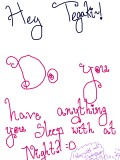 Hey
Tegaki~!
Do you
have anything
you sleep with at
Night? :O